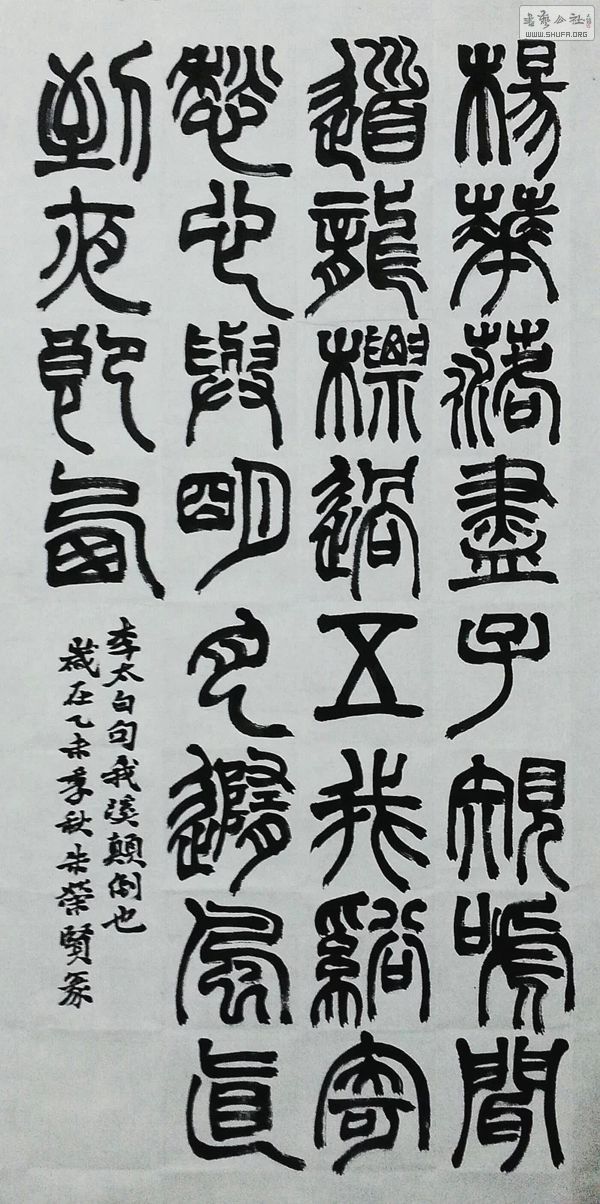 楊華落盡子規嗁聞
道龍標過五我谿寄
愁心與明月隨風直
到夜郎西
李太白句我溪顛倒也
歲在乙未季秋朱榮賢篆
書藝公社
WWW.SHUFA.ORG